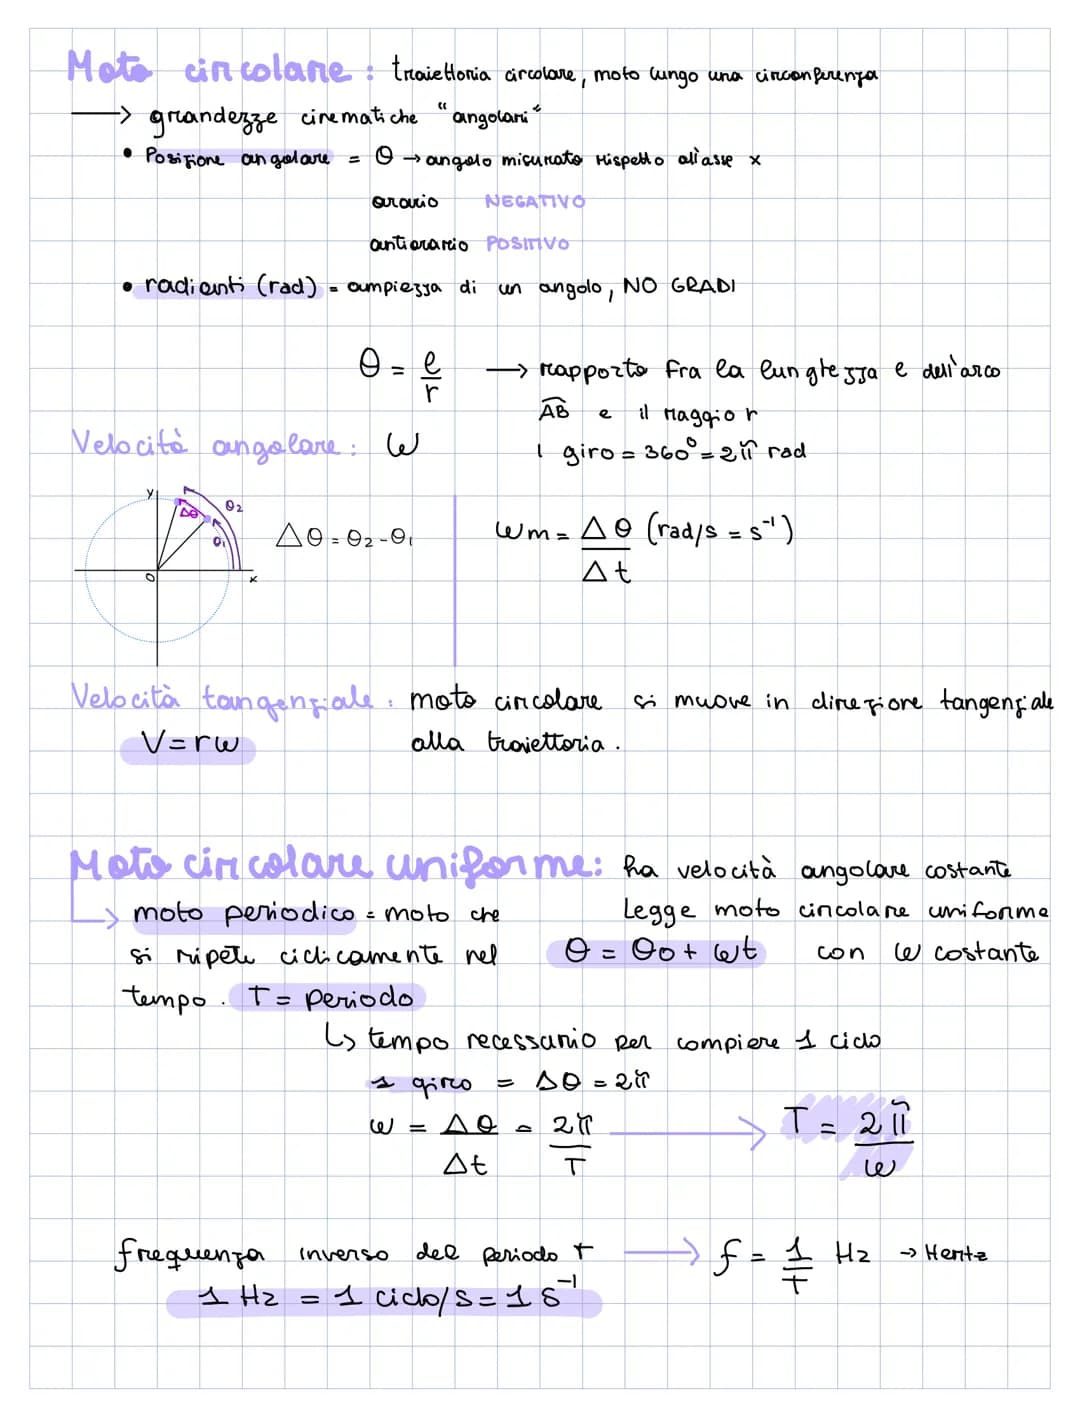 Moto circolare : traiettoria circolare, moto lungo una circonferenza
→ grandezze cinematiche "angolari"
• Posizione angolare = θ → angolo misurato rispetto all'asse x
orario NEGATIVO
antiorario POSITIVO
• radianti (rad) = ampiezza di un angolo, NO GRADI
θ = l/r → rapporto fra la lunghezza e dell'arco
AB e il raggio r
1 giro = 360° = 2π rad
Velocità angolare : ω
y
Δθ
θ2
θ1
O
x
Δθ = θ2 - θ1
ωm = Δθ/Δt (rad/s = s⁻¹)
Velocità tangenziale : moto circolare si muove in direzione tangenziale
alla traiettoria.
V = rω
Moto circolare uniforme: ha velocità angolare costante
moto periodico = moto che
si ripete ciclicamente nel
tempo. T = periodo
Legge moto circolare uniforme
θ = θ0 + ωt con ω costante
↳ tempo necessario per compiere 1 ciclo
1 giro = Δθ = 2π
ω = Δθ/Δt = 2π/T → T = 2π/ω
frequenza inverso del periodo T → f = 1/T Hz → Hertz
1 Hz = 1 ciclo/s = 1 s⁻¹